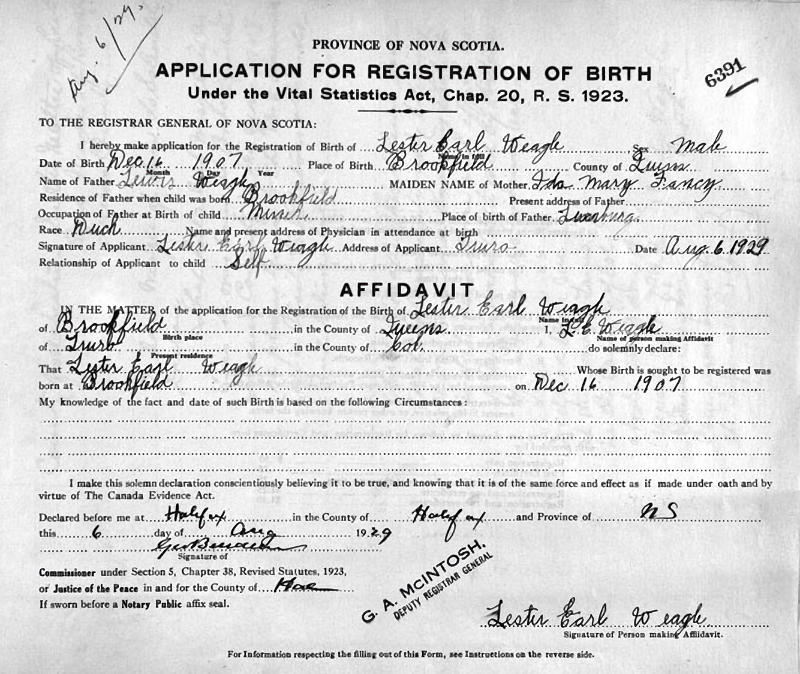 Aug. 6/29.
PROVINCE OF NOVA SCOTIA.
APPLICATION FOR REGISTRATION OF BIRTH
6391
Under the Vital Statistics Act, Chap. 20, R. S. 1923.
TO THE REGISTRAR GENERAL OF NOVA SCOTIA:
I hereby make application for the Registration of Birth of Lester Earl Weagle Sex Male
Name in full
Date of Birth Dec. 16 1907 Place of Birth Brookfield County of Queens
Month Day Year
Name of Father Lewis Weagle MAIDEN NAME of Mother Ida Mary Fancy
Residence of Father when child was born Brookfield Present address of Father
Occupation of Father at Birth of child Miner Place of birth of Father Lunenburg
Race Duch Name and present address of Physician in attendance at birth
Signature of Applicant Lester Earl Weagle Address of Applicant Truro Date Aug. 6 1929
Relationship of Applicant to child Self
AFFIDAVIT
IN THE MATTER of the application for the Registration of the Birth of Lester Earl Weagle
Name in full
of Brookfield in the County of Queens I, L E Weagle
Birth place Name of person making Affidavit
of Truro in the County of Col. do solemnly declare:
Present residence
That Lester Earl Weagle Whose Birth is sought to be registered was
born at Brookfield on Dec 16 1907
My knowledge of the fact and date of such Birth is based on the following Circumstances:
I make this solemn declaration conscientiously believing it to be true, and knowing that it is of the same force and effect as if made under oath and by
virtue of The Canada Evidence Act.
Declared before me at Halifax in the County of Halifax and Province of NS
this 6 day of Aug 1929
Signature of
Commissioner under Section 5, Chapter 38, Revised Statutes, 1923,
or Justice of the Peace in and for the County of
If sworn before a Notary Public affix seal.
G. A. MCINTOSH.
DEPUTY REGISTRAR GENERAL
Lester Earl Weagle
Signature of Person making Affidavit.
For Information respecting the filling out of this Form, see Instructions on the reverse side.